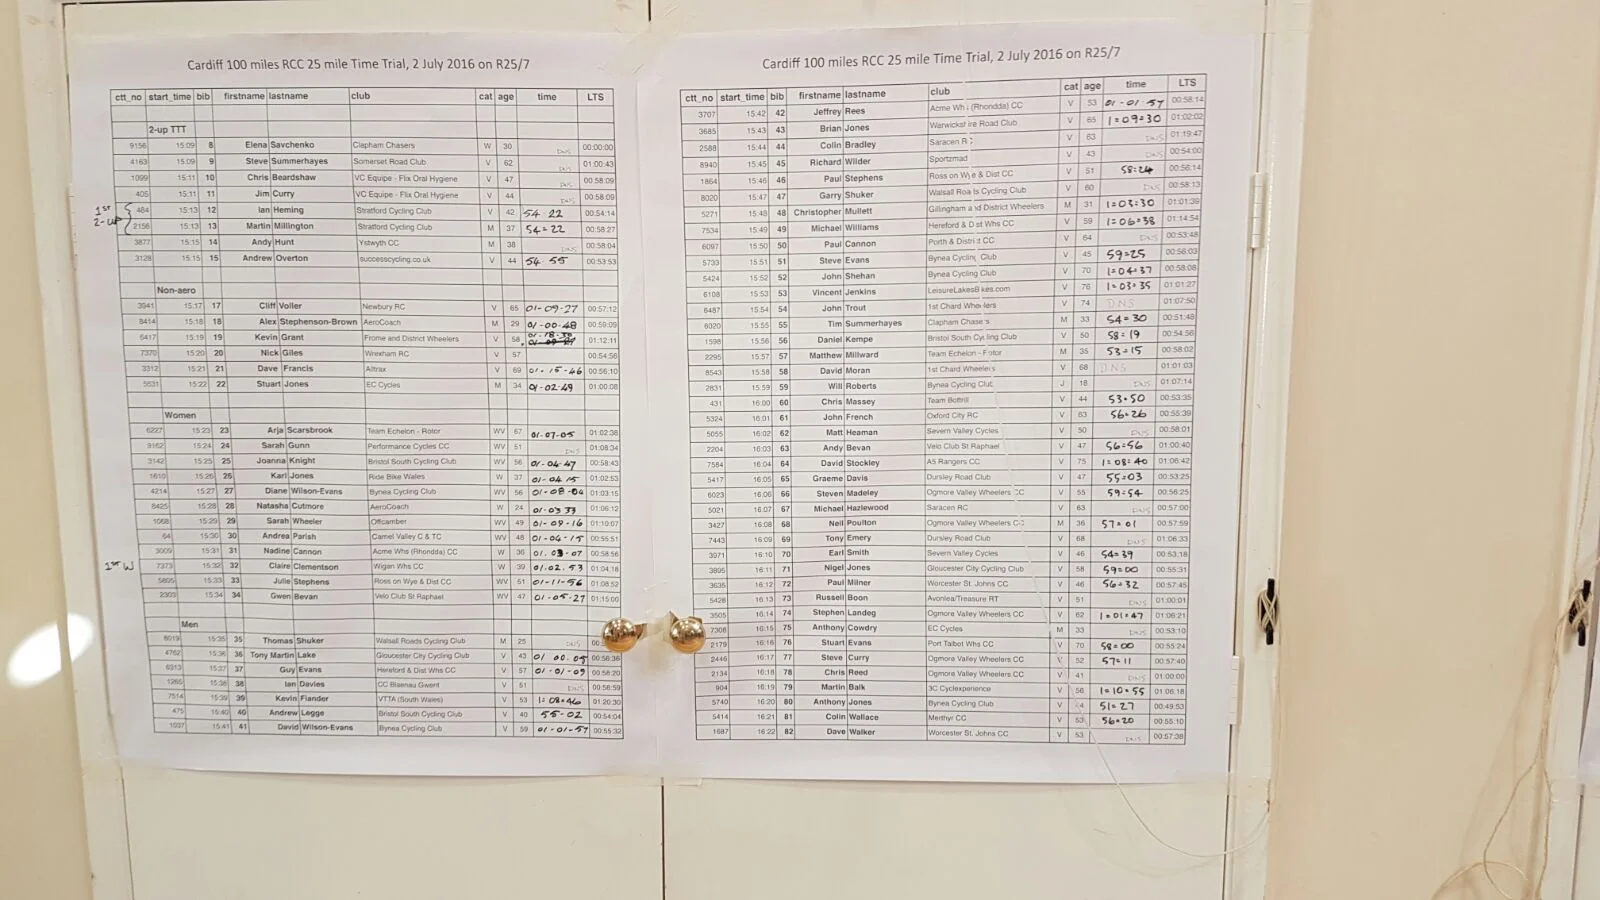 Cardiff 100 miles RCC 25 mile Time Trial, 2 July 2016 on R25/7
ctt_no start_time bib firstname lastname club cat age time LTS
2-up TTT
9156 15:09 8 Elena Savchenko Clapham Chasers W 30 DNS 00:00:00
4163 15:09 9 Steve Summerhayes Somerset Road Club V 62 DNS 01:00:43
1099 15:11 10 Chris Beardshaw VC Equipe - Flix Oral Hygiene V 47 DNS 00:58:09
405 15:11 11 Jim Curry VC Equipe - Flix Oral Hygiene V 44 DNS 00:58:09
1st 2-up
484 15:13 12 Ian Heming Stratford Cycling Club V 42 54 22 00:54:14
2156 15:13 13 Martin Millington Stratford Cycling Club M 37 54=22 00:58:27
3877 15:15 14 Andy Hunt Ystwyth CC M 38 DNS 00:58:04
3128 15:15 15 Andrew Overton successcycling.co.uk V 44 54.55 00:53:53
Non-aero
3941 15:17 17 Cliff Voller Newbury RC V 65 01-09-27 00:57:12
8414 15:18 18 Alex Stephenson-Brown AeroCoach M 29 01-00-48 00:59:09
6417 15:19 19 Kevin Grant Frome and District Wheelers V 58 01-18-30 01:12:11
7370 15:20 20 Nick Giles Wrexham RC V 57 00:54:56
3312 15:21 21 Dave Francis Alltrax V 69 01-15-46 00:56:10
5531 15:22 22 Stuart Jones EC Cycles M 34 01-02-49 01:00:08
Women
6227 15:23 23 Arja Scarsbrook Team Echelon - Rotor WV 67 01-07-05 01:02:38
9162 15:24 24 Sarah Gunn Performance Cycles CC WV 51 DNS 01:08:34
3142 15:25 25 Joanna Knight Bristol South Cycling Club WV 56 01-04-47 00:58:43
1610 15:26 26 Karl Jones Ride Bike Wales W 37 01-04 15 01:02:53
4214 15:27 27 Diane Wilson-Evans Bynea Cycling Club WV 56 01-08-04 01:03:15
8425 15:28 28 Natasha Cutmore AeroCoach W 24 01-03 33 01:06:12
1068 15:29 29 Sarah Wheeler Offcamber WV 49 01-09-16 01:10:07
64 15:30 30 Andrea Parish Camel Valley C & TC WV 48 01-04-15 00:55:51
3009 15:31 31 Nadine Cannon Acme Whs (Rhondda) CC W 36 01.03-07 00:58:56
1st W 7373 15:32 32 Claire Clementson Wigan Whs CC W 39 01.02.53 01:04:18
5895 15:33 33 Julie Stephens Ross on Wye & Dist CC WV 51 01-11-56 01:08:52
2303 15:34 34 Gwen Bevan Velo Club St Raphael WV 47 01-05-27 01:15:00
Men
8019 15:35 35 Thomas Shuker Walsall Roads Cycling Club M 25 DNS
4762 15:36 36 Tony Martin Lake Gloucester City Cycling Club V 43 01 00.05 00:56:36
6913 15:37 37 Guy Evans Hereford & Dist Whs CC V 57 01-01-09 00:58:20
1265 15:38 38 Ian Davies CC Blaenau Gwent V 51 DNS 00:58:59
7514 15:39 39 Kevin Flander VTTA (South Wales) V 53 1=08=46 01:20:30
475 15:40 40 Andrew Legge Bristol South Cycling Club V 40 55-02 00:54:04
1937 15:41 41 David Wilson-Evans Bynea Cycling Club V 59 01-01-57 00:55:32
Cardiff 100 miles RCC 25 mile Time Trial, 2 July 2016 on R25/7
ctt_no start_time bib firstname lastname club cat age time LTS
3707 15:42 42 Jeffrey Rees Acme Whs (Rhondda) CC V 53 01-01-57 00:58:14
3685 15:43 43 Brian Jones Warwickshire Road Club V 65 1=09=30 01:02:02
2588 15:44 44 Colin Bradley Saracen RC V 63 DNS 01:19:47
8940 15:45 45 Richard Wilder Sportzmad V 43 DNS 00:54:00
1864 15:46 46 Paul Stephens Ross on Wye & Dist CC V 51 58=24 00:56:14
8020 15:47 47 Garry Shuker Walsall Roads Cycling Club V 60 DNS 00:58:13
5271 15:48 48 Christopher Mullett Gillingham and District Wheelers M 31 1=03=30 01:01:39
7534 15:49 49 Michael Williams Hereford & Dist Whs CC V 59 1=06=38 01:14:54
6097 15:50 50 Paul Cannon Porth & District CC V 64 DNS 00:53:48
5733 15:51 51 Steve Evans Bynea Cycling Club V 45 59=25 00:58:03
5424 15:52 52 John Shehan Bynea Cycling Club V 70 1=04=37 00:58:08
6108 15:53 53 Vincent Jenkins LeisureLakesBikes.com V 76 1=03=35 01:01:27
6487 15:54 54 John Trout 1st Chard Wheelers V 74 DNS 01:07:50
6020 15:55 55 Tim Summerhayes Clapham Chasers M 33 54=30 00:51:48
1598 15:56 56 Daniel Kempe Bristol South Cycling Club V 50 58=19 00:54:56
2295 15:57 57 Matthew Millward Team Echelon - Rotor M 35 53=15 00:58:02
8543 15:58 58 David Moran 1st Chard Wheelers V 68 DNS 01:01:03
2831 15:59 59 Will Roberts Bynea Cycling Club J 18 DNS 01:07:14
431 16:00 60 Chris Massey Team Bottrill V 44 53=50 00:53:35
5324 16:01 61 John French Oxford City RC V 63 56=26 00:55:39
5055 16:02 62 Matt Heaman Severn Valley Cycles V 50 DNS 00:58:01
2204 16:03 63 Andy Bevan Velo Club St Raphael V 47 56=56 01:00:40
7584 16:04 64 David Stockley A5 Rangers CC V 75 1=08=40 01:06:42
5417 16:05 65 Graeme Davis Dursley Road Club V 47 55=03 00:53:25
6023 16:06 66 Steven Madeley Ogmore Valley Wheelers CC V 55 59=54 00:56:25
5021 16:07 67 Michael Hazlewood Saracen RC V 63 DNS 00:57:00
3427 16:08 68 Neil Poulton Ogmore Valley Wheelers CC M 36 57=01 00:57:59
7443 16:09 69 Tony Emery Dursley Road Club V 68 DNS 01:06:33
3971 16:10 70 Earl Smith Severn Valley Cycles V 46 54=39 00:53:18
3895 16:11 71 Nigel Jones Gloucester City Cycling Club V 58 59=00 00:55:31
3635 16:12 72 Paul Milner Worcester St. Johns CC V 46 56=32 00:57:45
5428 16:13 73 Russell Boon Avonlea/Treasure RT V 51 DNS 01:00:01
3505 16:14 74 Stephen Landeg Ogmore Valley Wheelers CC V 62 1=01=47 01:06:21
7306 16:15 75 Anthony Cowdry EC Cycles M 33 DNS 00:53:10
2179 16:16 76 Stuart Evans Port Talbot Whs CC V 70 58=00 00:55:24
2446 16:17 77 Steve Curry Ogmore Valley Wheelers CC V 52 57=11 00:57:40
2134 16:18 78 Chris Reed Ogmore Valley Wheelers CC V 41 DNS 01:00:00
904 16:19 79 Martin Balk 3C Cyclexperience V 56 1=10=55 01:06:18
5740 16:20 80 Anthony Jones Bynea Cycling Club V 44 51=27 00:49:53
5414 16:21 81 Colin Wallace Merthyr CC V 53 56=20 00:55:10
1687 16:22 82 Dave Walker Worcester St. Johns CC V 53 DNS 00:57:38